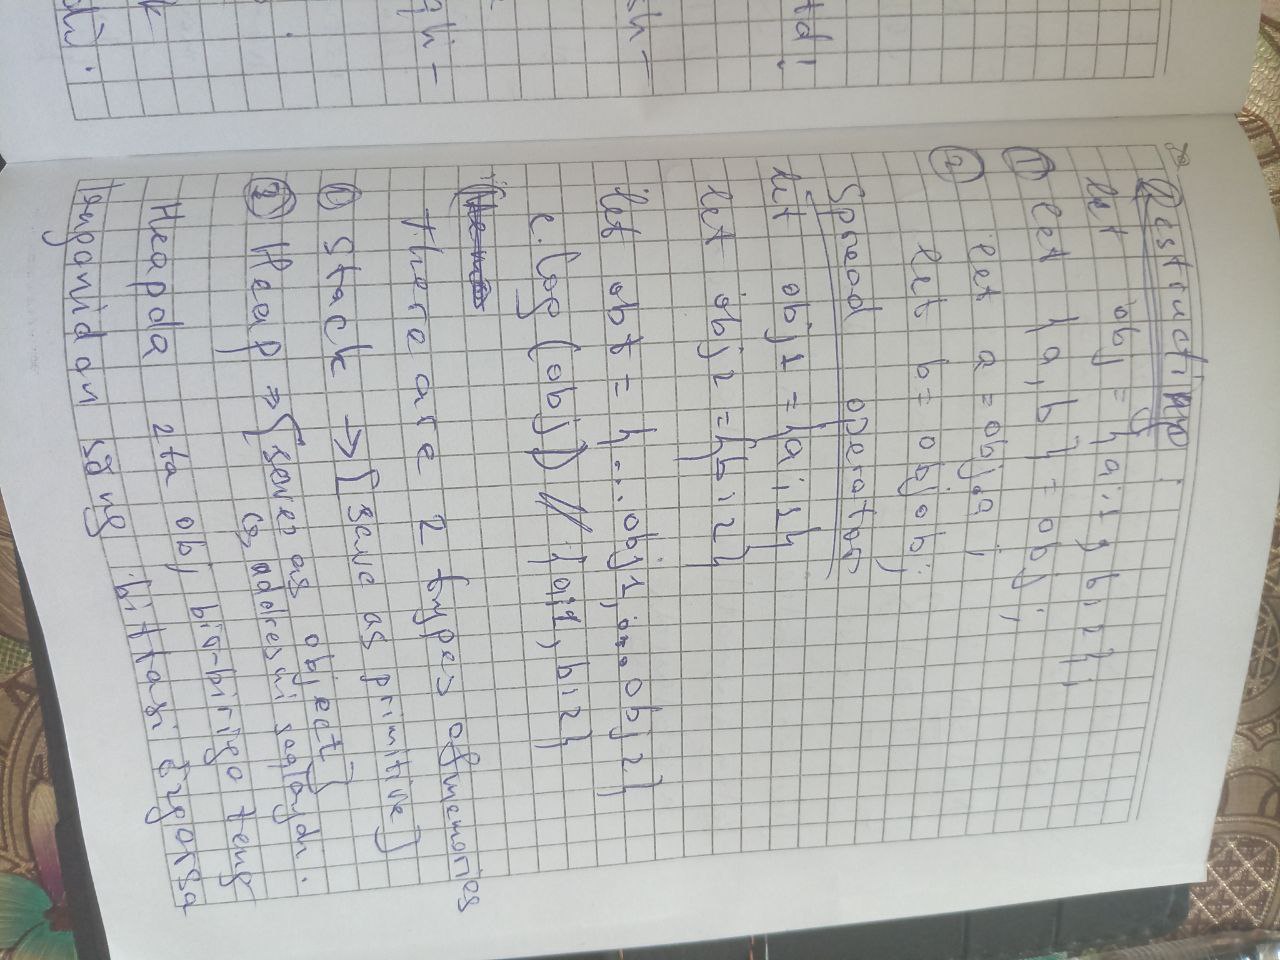 Restructuring
let obj = {a:1, b:2};
① let {a,b} = obj;
② let a = obj.a;
let b = obj.b;
Spread operator
let obj1 = {a:1}
let obj2 = {b:2}
let obt = {...obj1, ...obj2}
c.log(obj) // {a:1, b:2}
There are 2 types of memories
① Stack → [save as primitive]
② Heap → {saves as object}
addresni saqlaydi.
Heapda 2ta obj bir-biriga teng
tengonidan song bittasi o'zgorsa
td!